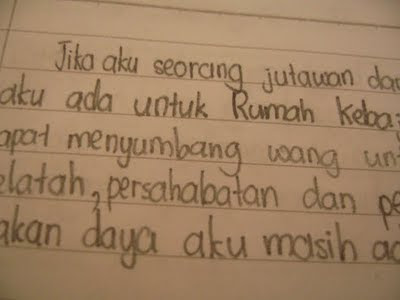 Jika aku seorang jutawan da
aku ada untuk Rumah Keba
apat menyumbang wang un
elatah, persahabatan dan pe
akan daya aku masih ad